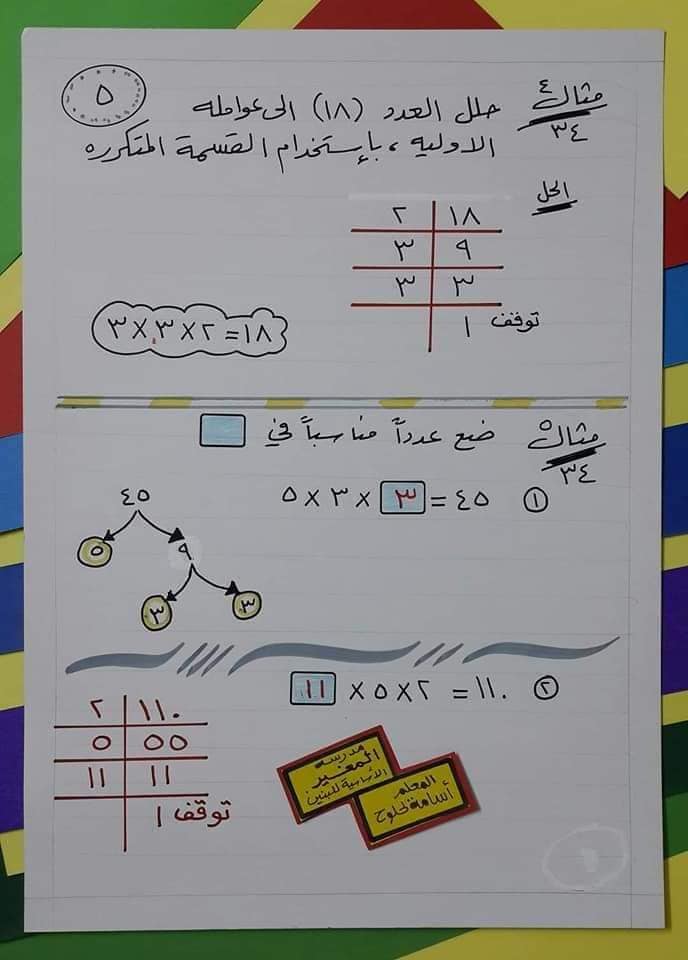 ٥
مثال ٤
٣٤
حلل العدد (١٨) الى عوامله
الاوليه ، بإستخدام القسمة المتكرره
الحل
١٨ | ٢
٩ | ٣
٣ | ٣
١ توقف
١٨ = ٢ × ٣ × ٣
مثال ٥
٣٤
ضع عدداً مناسباً في
① ٤٥ = ٣ × ٣ × ٥
٤٥
٩ ٥
٣ ٣
② ١١٠ = ٢ × ٥ × ١١
١١٠ | ٢
٥٥ | ٥
١١ | ١١
١ توقف
مدرسة
المغير
الأساسية للبنين
المعلم
أسامة لحلوح